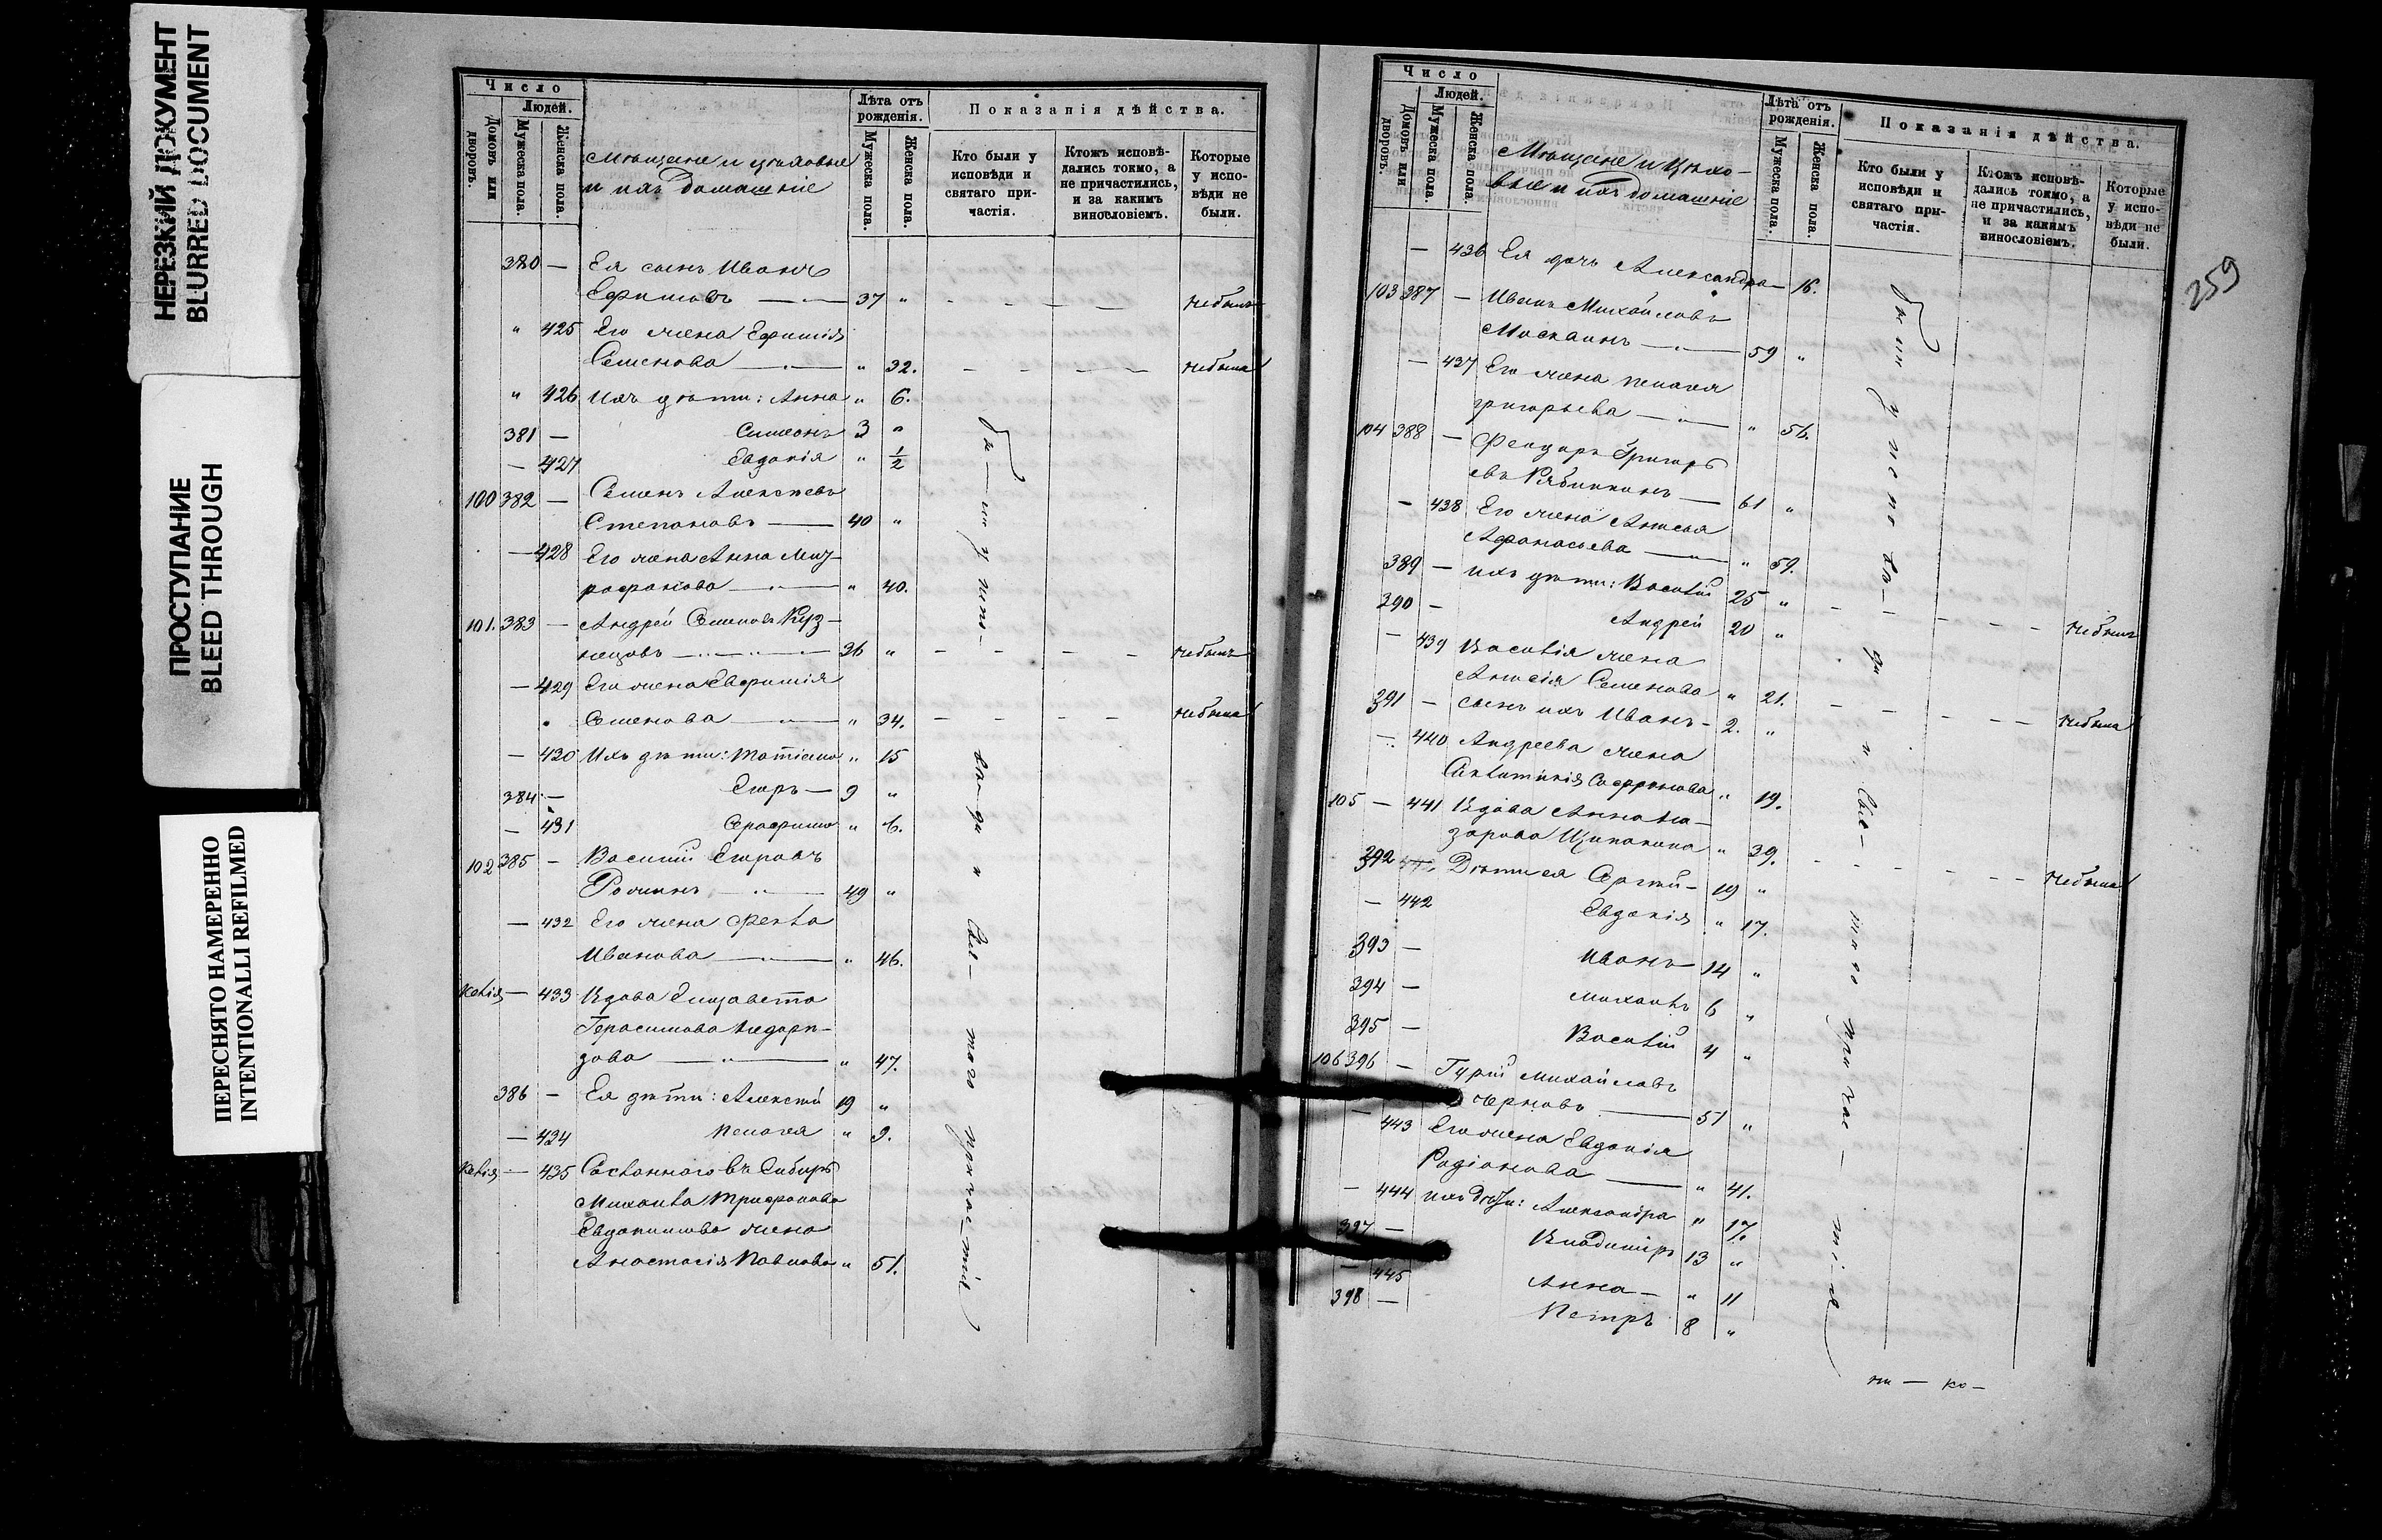 НЕРЕЗКИЙ ДОКУМЕНТ
BLURRED DOCUMENT
ПРОСТУПАНИЕ
BLEED THROUGH
ПЕРЕСНЯТО НАМЕРЕННО
INTENTIONALLI REFILMED
Число
Людей.
Домовъ или дворовъ.
Мужеска пола.
Женска пола.
Мѣщане и цеховые
и ихъ домашніе
Лѣта отъ рожденія.
Мужеска пола.
Женска пола.
Показанія дѣйства.
Кто были у исповѣди и святаго причастія.
Ктожъ исповѣдались токмо, а не причастились, и за какимъ винословіемъ.
Которые у исповѣди не были.
380 — Ея сынъ Иванъ
Ефимовъ — 37 " - - - — небылъ
" 425 Его жена Ефимія
Семенова — " 32. - - — — небыла
" 426 Ихъ дѣти: Анна " 6.
381 — Симеонъ 3 "
— 427 Евдокія " 1/2
100 382 — Семенъ Алексѣевъ
Степановъ — 40 "
— 428 Его жена Анна Мит-
рофанова — " 40.
101. 383 — Андрей Семеновъ Куз-
нецовъ — 36 " - - - - небылъ
— 429 Его жена Евфимія
Семенова — " 34. - - - - небыла
— 430 Ихъ дѣти: Татіана " 15
384 — Егоръ — 9 "
— 431 Серафима " 6.
102 385 — Василій Егоровъ
49 "
— 432 Его жена Фекла
Иванова — " 46.
Келія — 433 Вдова Елизавета
Герасимова
зова — " 47.
386 — Ея дѣти: Алексѣй 19 "
— 434 Пелагея " 9.
Келія — 435 Сосланнаго въ Сибирь
Михаила Трифонова
Евдокимова жена
Анастасія Павлова " 51.
были у исповѣди и Свят-таго причастія
Число
Людей.
Домовъ или дворовъ.
Мужеска пола.
Женска пола.
Мѣщане и Цехо-
вые и ихъ домашніе
Лѣта отъ рожденія.
Мужеска пола.
Женска пола.
Показанія дѣйства.
Кто были у исповѣди и святаго причастія.
Ктожъ исповѣдались токмо, а не причастились, и за какимъ винословіемъ.
Которые у исповѣди не были.
259
— 436 Ея дочь Александра — 16.
103 387 — Иванъ Михайловъ
59 "
— 437 Его жена Пелагея
Григорьева — " 56.
104 388 — Феодоръ Григорь
евъ Рябинкинъ — 61 "
— 438 Его жена
Афанасьева — " 59.
389 — ихъ дѣти: Василій 25 "
390 — Андрей 20 " - - - - - небылъ
— 439 Василія жена
Анисія Семенова " 21.
391 — сынъ ихъ Иванъ — 2. " - - - - - небыла
— 440 Андреева жена
Софронова " 19.
105 — 441 Вдова Анна На-
зарова " 39.
392 Дѣти ея Сергѣй — 19 " - - - - небылъ
— 442 Евдокія " 17.
393 — Иванъ 14 "
394 — Михаилъ 6 "
395 — Василій 4 "
106 396 — Гурій Михайловъ
Черновъ — 51 "
— 443 Его жена Евдокія
Родіонова — " 41.
— 444 ихъ дѣти: Александра " 17.
397 — Владиміръ 13 "
— 445 Анна — " 11
398 — Петръ 8 "
были у исповѣди и Свя-таго причастія
ни — ко —